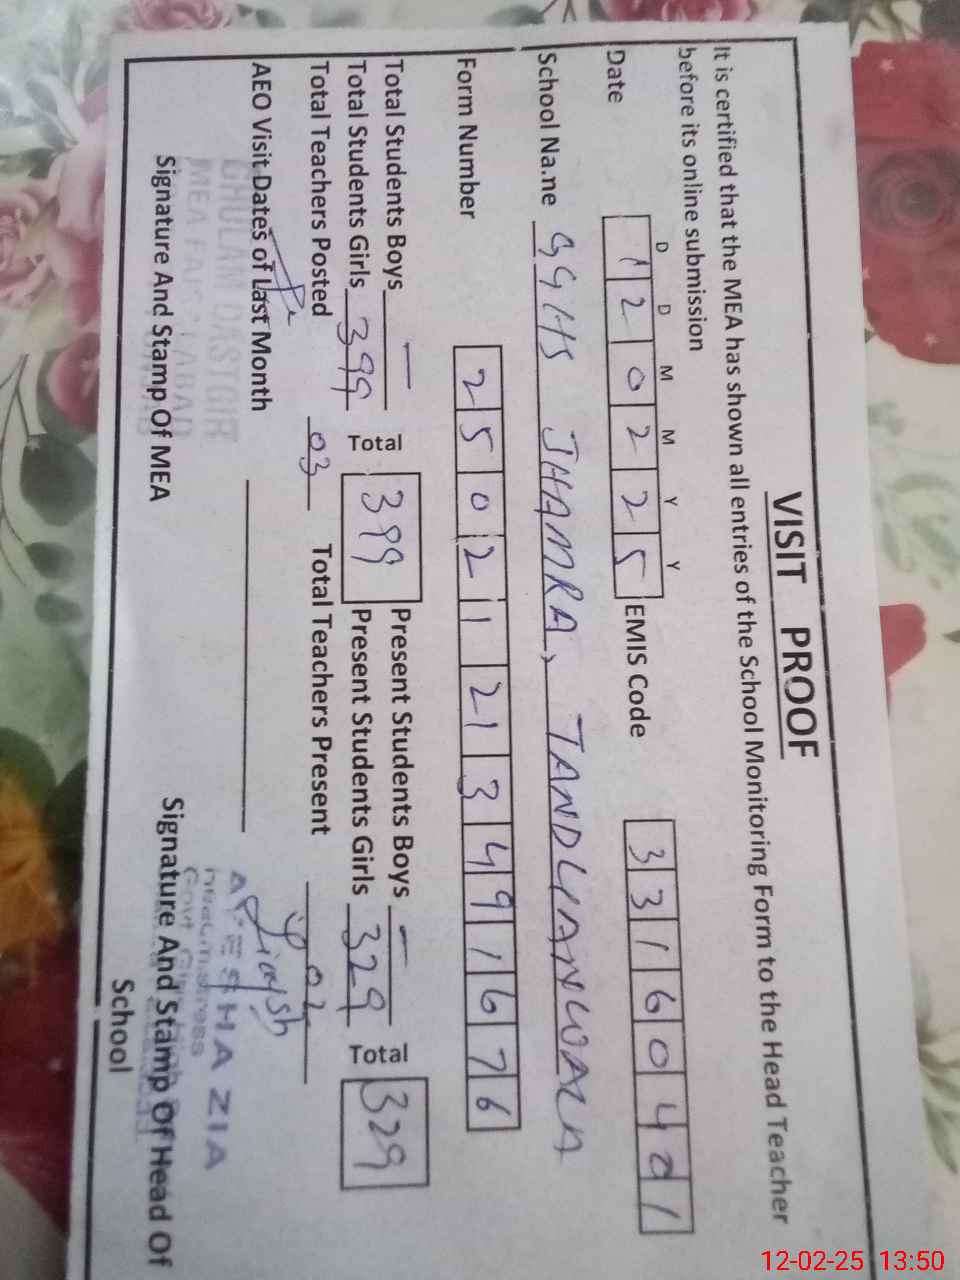 VISIT PROOF
It is certified that the MEA has shown all entries of the School Monitoring Form to the Head Teacher
before its online submission
D D M M Y Y
Date 120225 EMIS Code 33160401
School Na.ne GGHS JHAMRA, TANDLIANWALA
Form Number 25021213491676
Total Students Boys — Total 399 Present Students Boys — Total 329
Total Students Girls 399 Present Students Girls 329
Total Teachers Posted 03 Total Teachers Present 02
AEO Visit Dates of Last Month
GHULAM DASTGIR
AYESHA ZIA
Signature And Stamp Of MEA Signature And Stamp Of Head Of
School
12-02-25 13:50